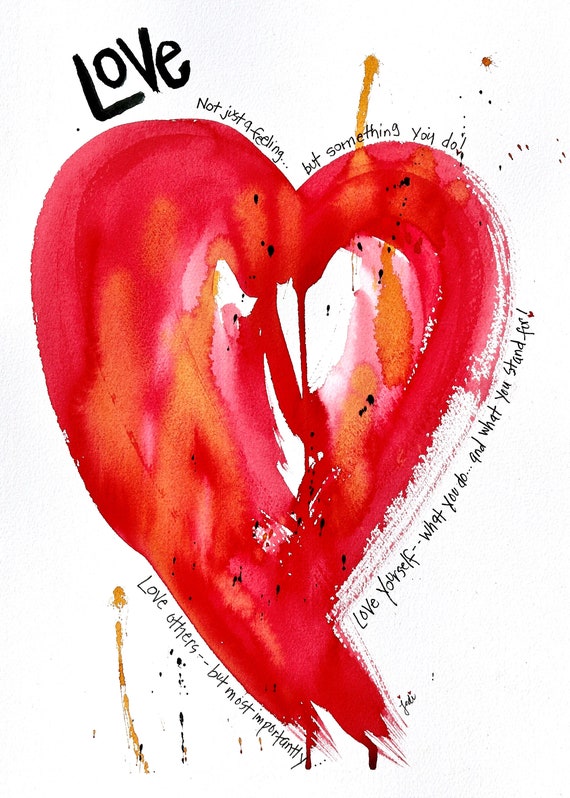 Love
Not just a feeling...
but something you do!
Love others -- but most importantly ...
Love yourself -- what you do... and what you stand for!
Jodi